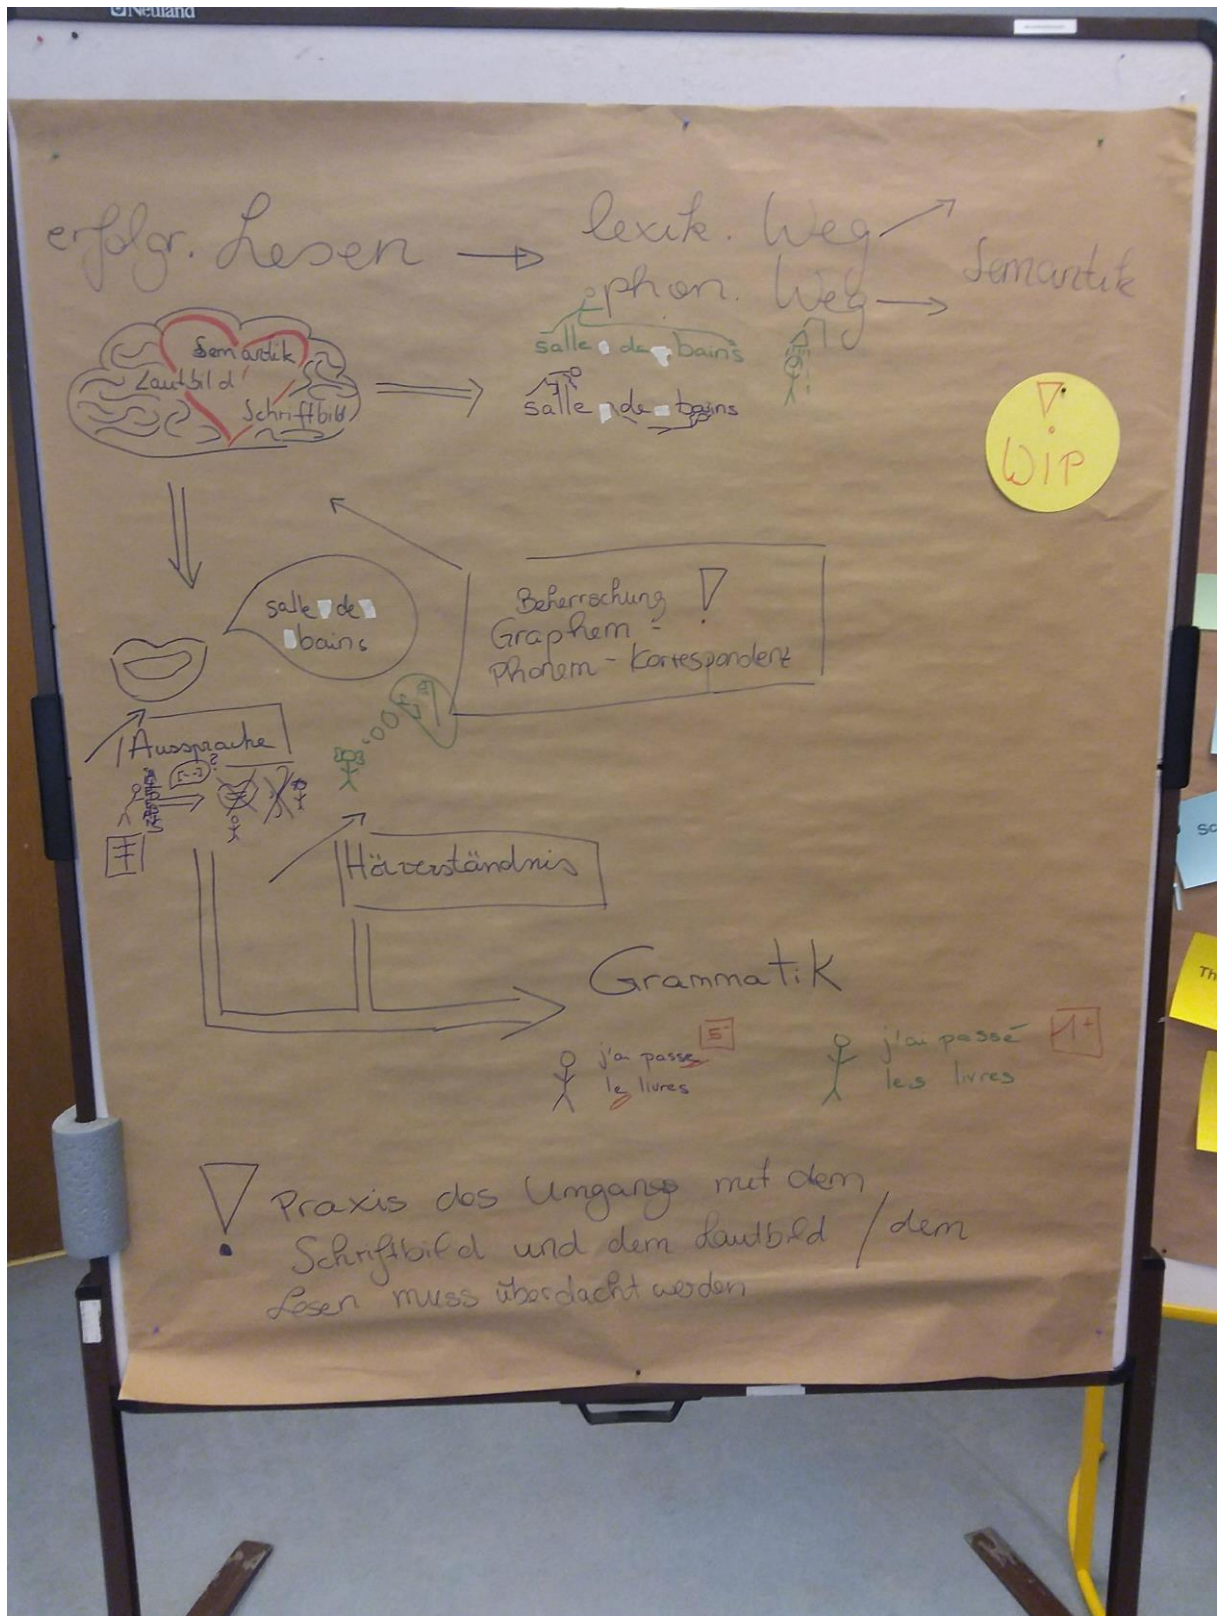 Neuland
erfolgr. Lesen
lexik. Weg
phon. Weg
Semantik
salle de bains
salle de bains
Semantik
Lautbild
Schriftbild
!
WiP
salle de
bains
Beherrschung !
Graphem -
Phonem - Korrespondenz
Aussprache
[---]?
Hörverständnis
Grammatik
j'ai passe
le livres
5-
j'ai passé
les livres
1+
! Praxis des Umgangs mit dem
Schriftbild und dem Lautbild / dem
Lesen muss überdacht werden
Th